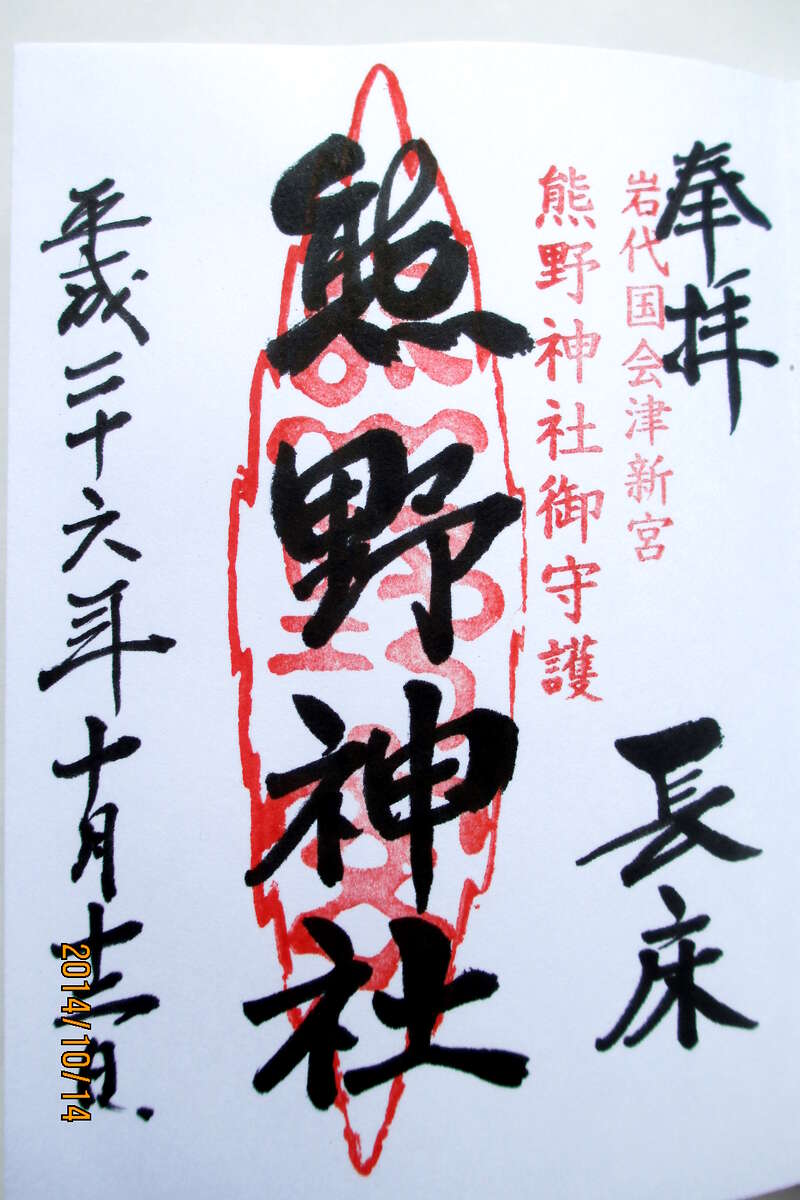 奉拝
長床
岩代国会津新宮
熊野神社御守護
熊野神社
平成二十六年十月十三日
2014/10/14